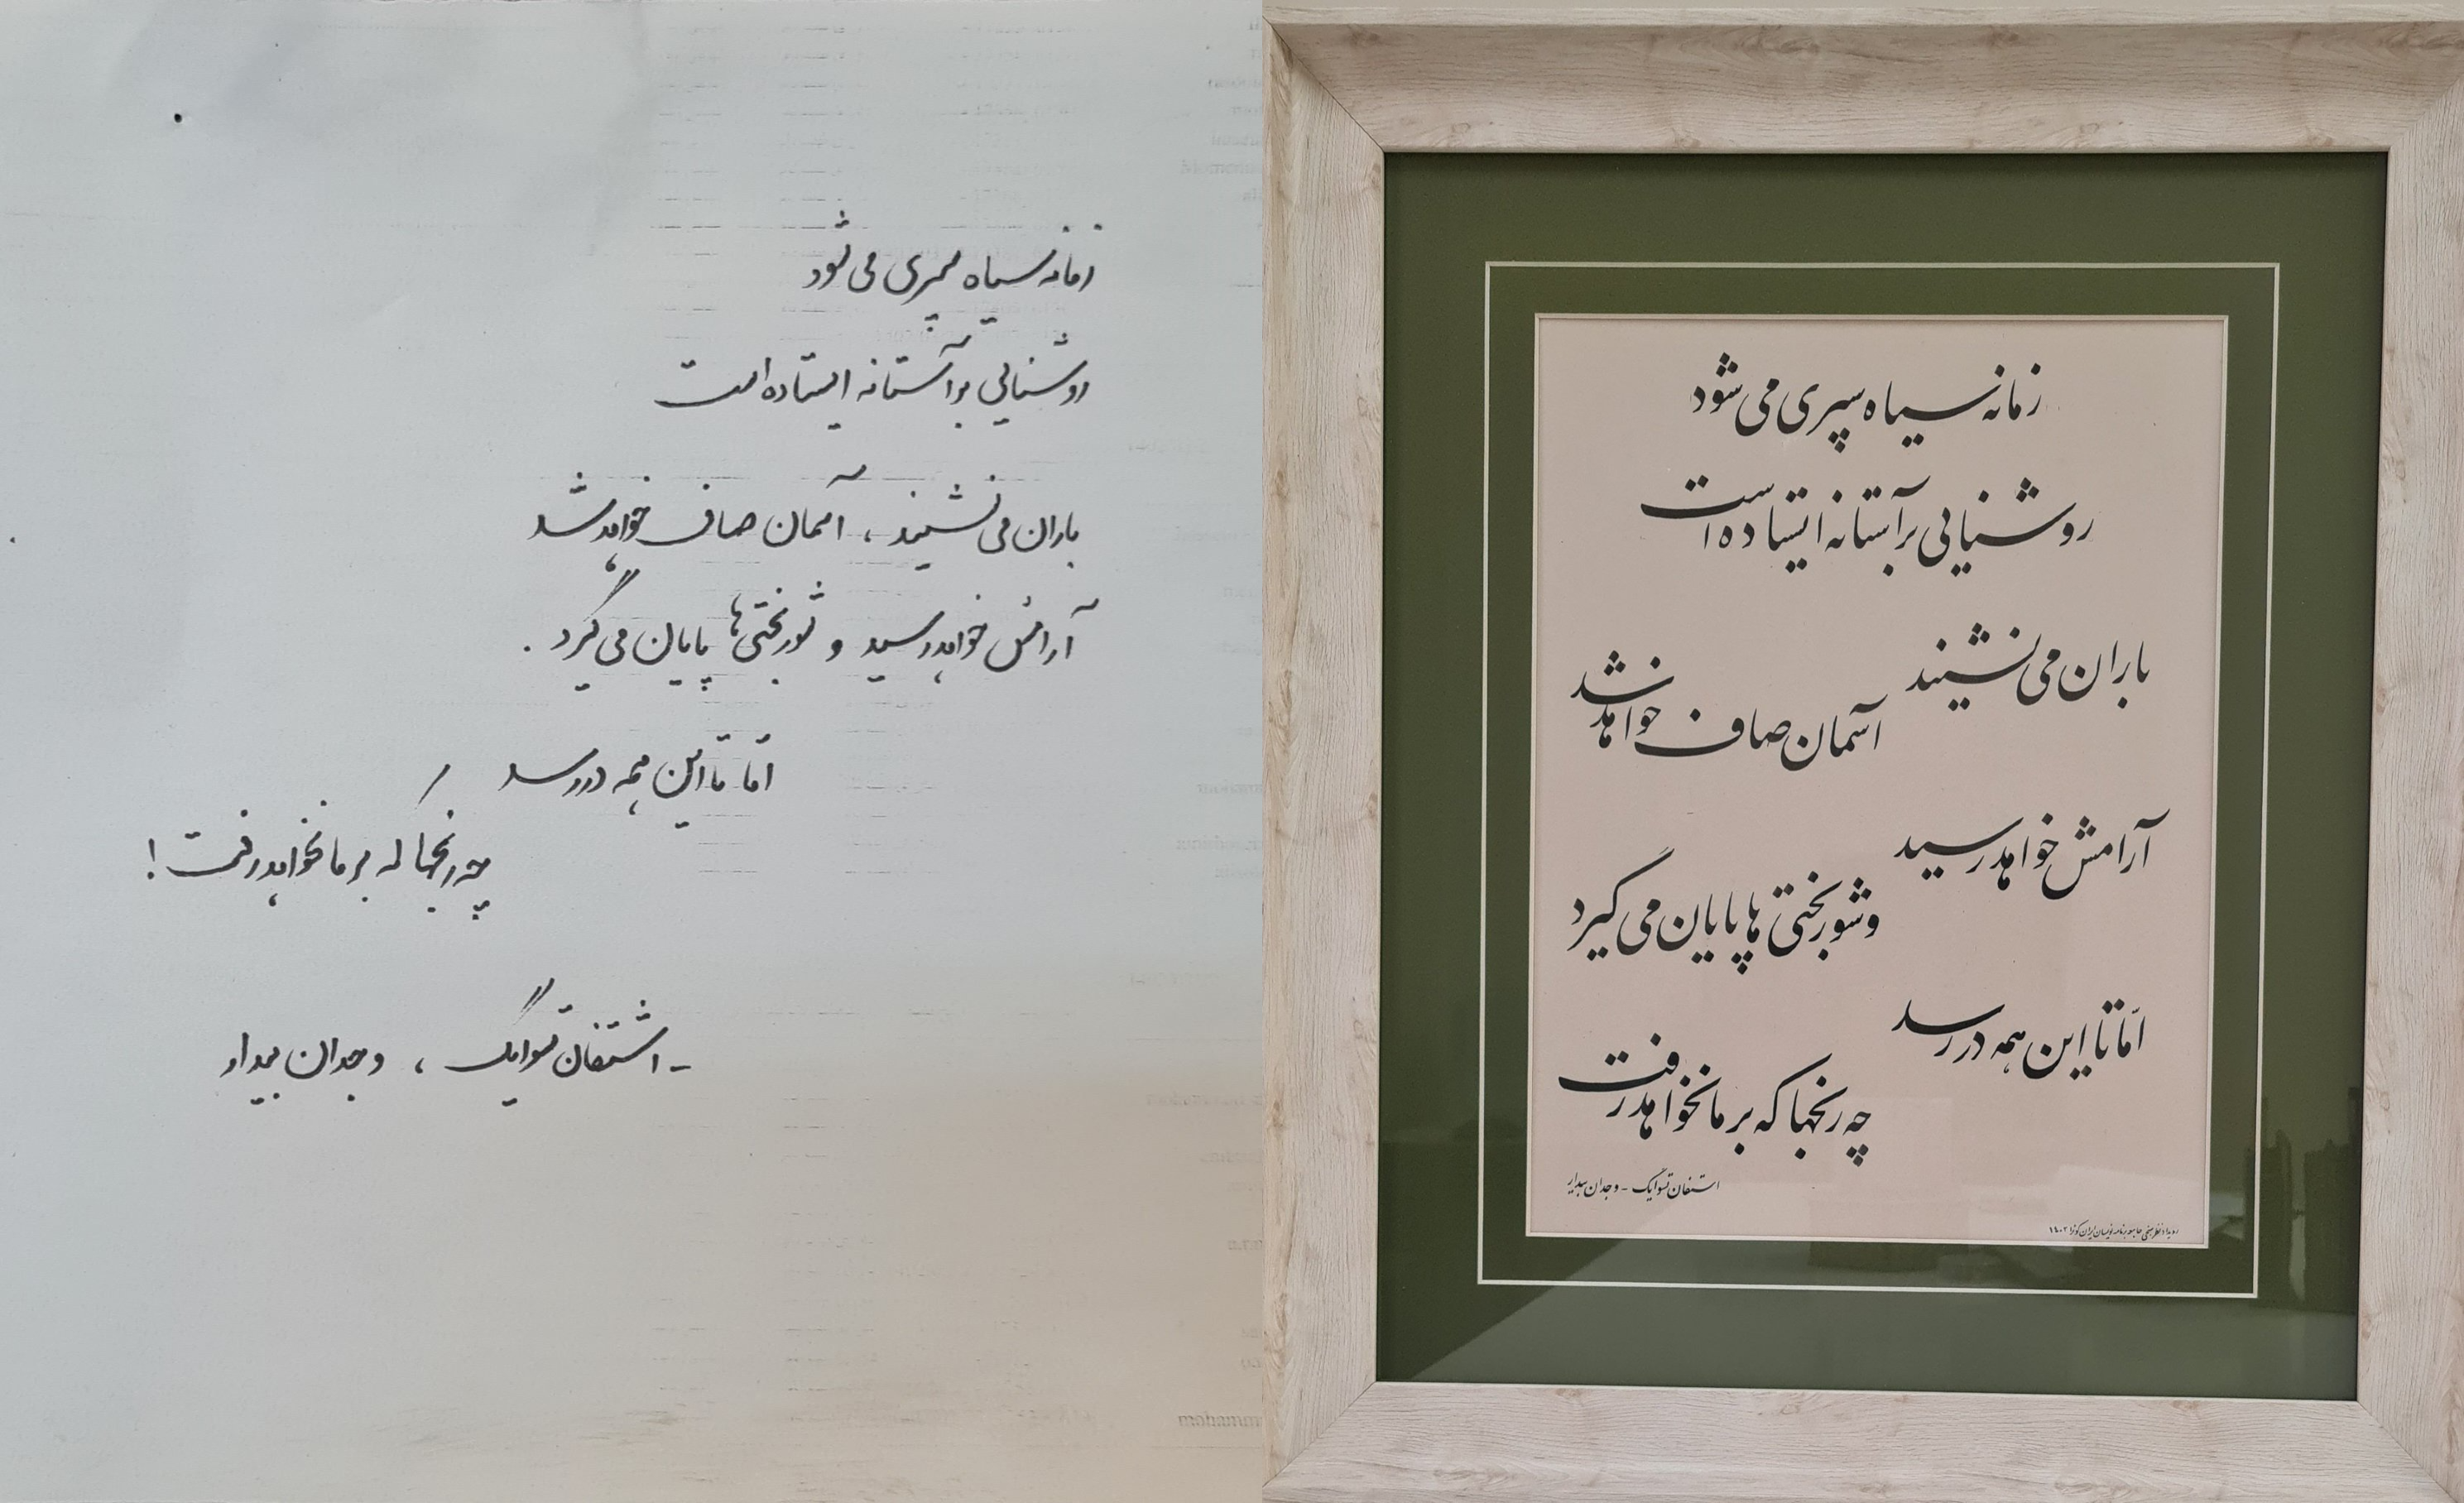 زمانه سیاه سپری می‌شود
روشنایی بر آستانه ایستاده است
باران می‌نشیند، آسمان صاف خواهد شد
آرامش خواهد رسید و شوربختی‌ها پایان می‌گیرد.
امّا تا این همه در رسد
چه رنجها که بر ما نخواهد رفت!
- اشتفان تسوایگ، وجدان بیدار
زمانه سیاه سپری می‌شود
روشنایی بر آستانه ایستاده است
باران می‌نشیند
آسمان صاف خواهد شد
آرامش خواهد رسید
و شوربختی‌ها پایان می‌گیرد
امّا تا این همه در رسد
چه رنجها که بر ما نخواهد رفت
اشتفان تسوایگ - وجدان بیدار
جامعه برنامه‌نویسان ایران
mohamm